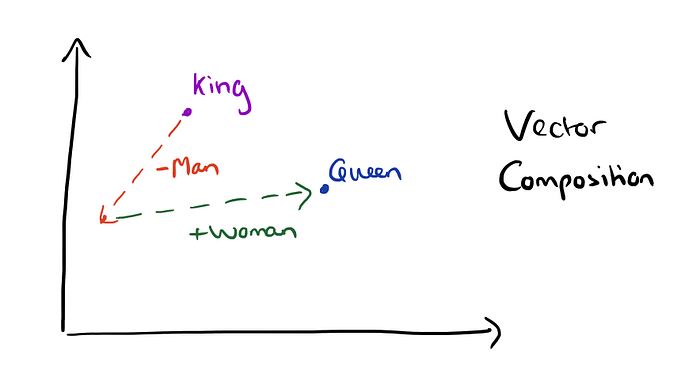 King
-Man
Queen
+Woman
Vector
Composition